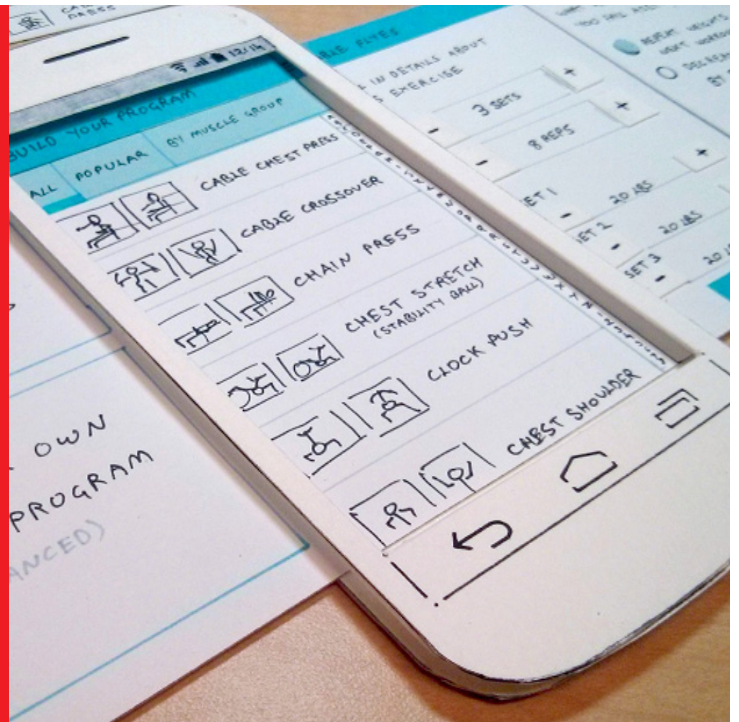 CABLE
PRESS
12/14
BUILD YOUR PROGRAM
ALL
POPULAR
BY MUSCLE GROUP
CABLE CHEST PRESS
CABLE CROSSOVER
CHAIN PRESS
CHEST STRETCH
(STABILITY BALL)
CLOCK PUSH
CHEST SHOULDER
OWN
PROGRAM
FLYES
IN DETAILS ABOUT
EXERCISE
- 3 SETS +
- 8 REPS +
- 20 LBS +
SET 2 - 20 LBS
SET 3 - 20
YOU
REPEAT WEIGHTS
NEXT
BY